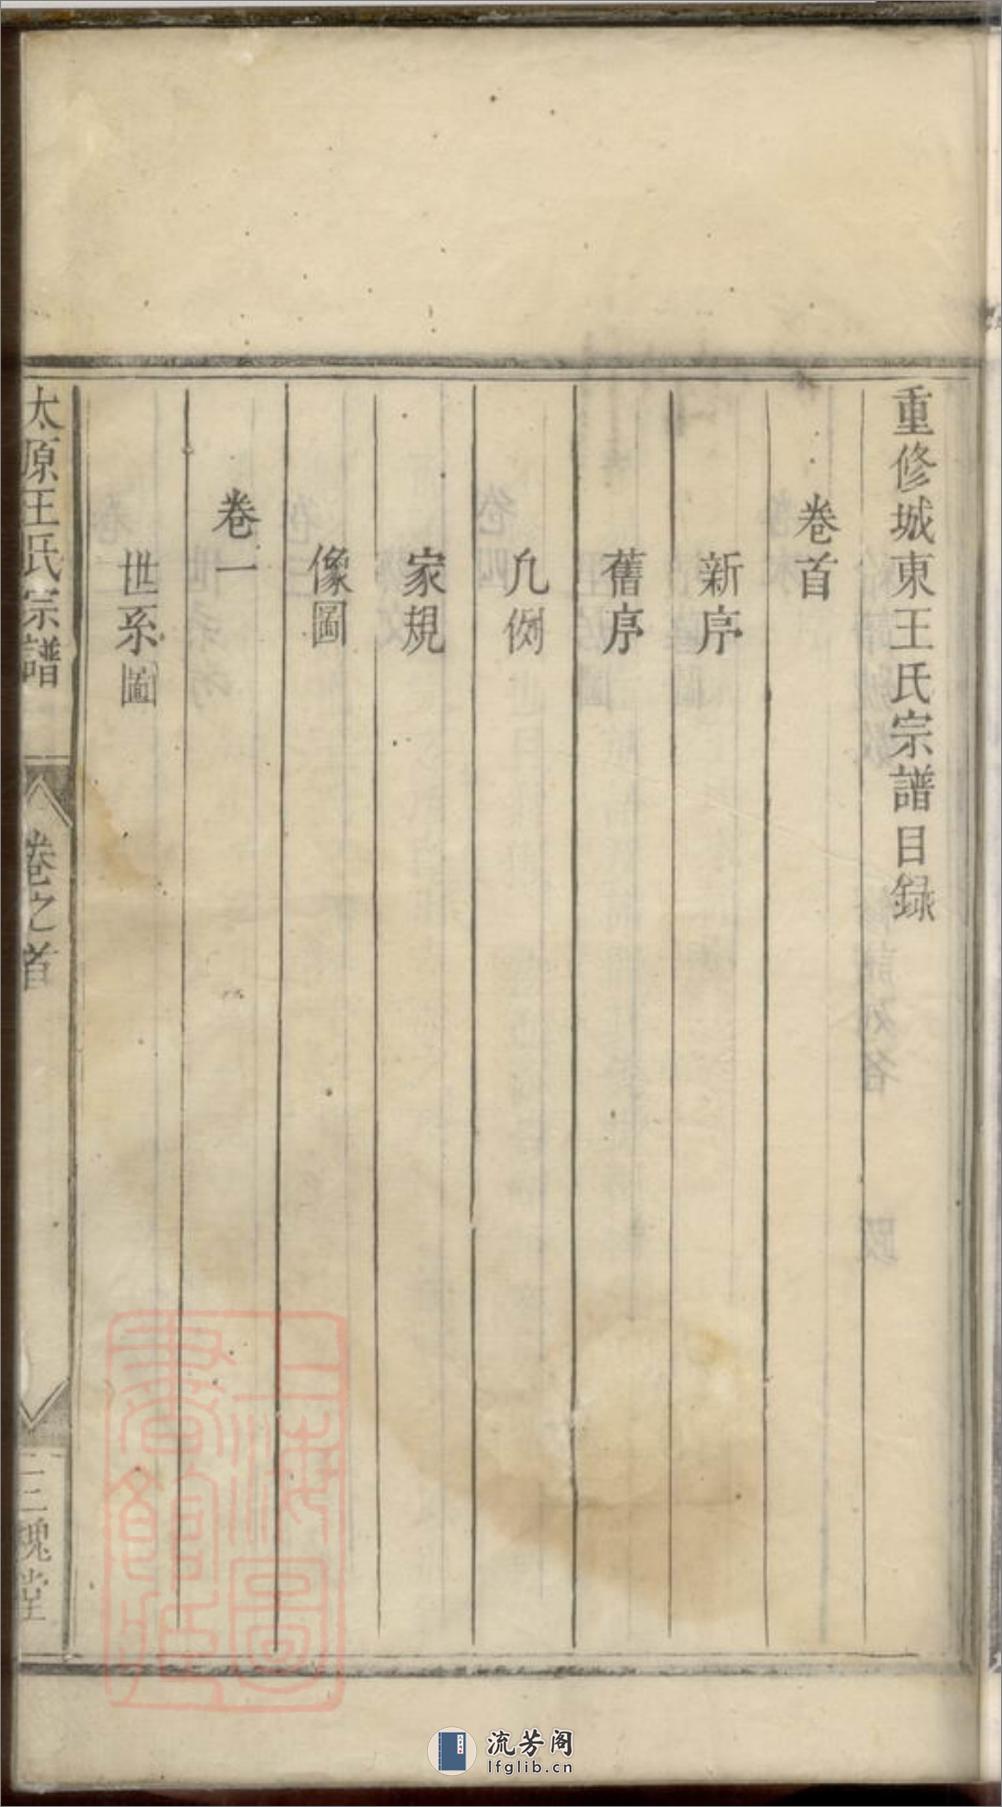 重修城東王氏宗譜目録
卷首
新序
舊序
凡例
家規
像圖
卷一
世系圖
太原王氏宗譜
卷之首
三槐堂
上海圖書館藏
流芳阁
lfglib.cn